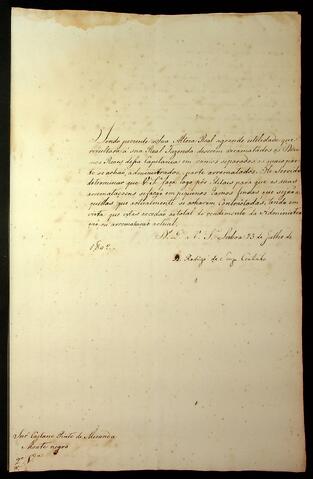 Sendo prezente a Sua Alteza Real a grande utilidade que
rezultará á sua Real Fazenda de serem arrematados os
Reaes dessa Capitania em ramos separados os quaes por
se achaõ administrados, e parte arrematados. He Servido
determinar que V. S. faça logo pôr Editaes para que as suas
arremataçoens se façaõ em pequenos Ramos findas que sejaõ
quellas que actualmente se acharem Contractadas, tendo em
vista que estas excedaõ ao total do rendimento da Administra
çaõ ou arremataçaõ actual.
D. G. a V. S. Lisboa 23 de Julho de
1802.
D. Rodrigo de Souza Coutinho
Snr Caetano Pinto de Miranda
Monte negro